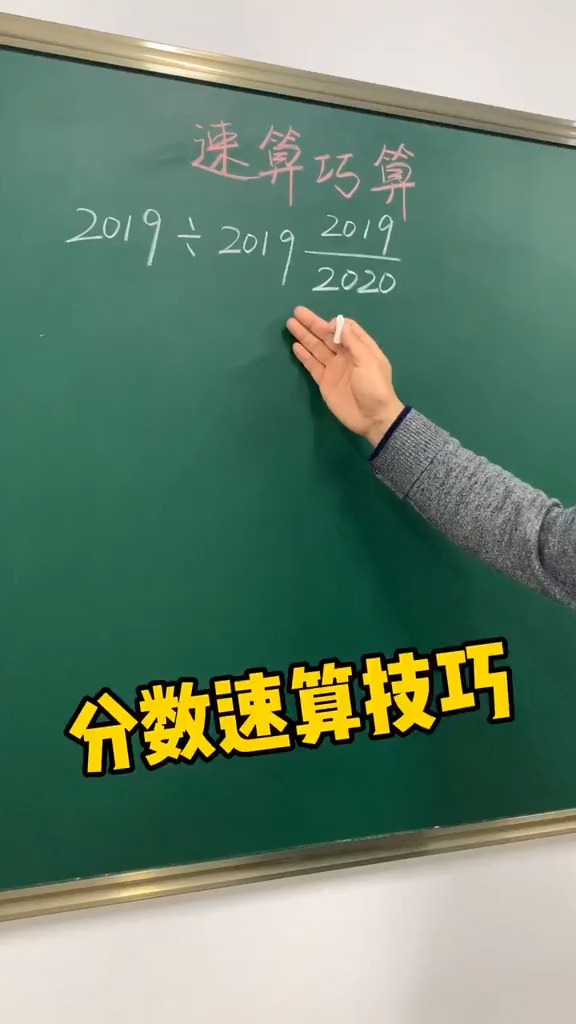 速算巧算
2019÷2019 2019/2020
分数速算技巧